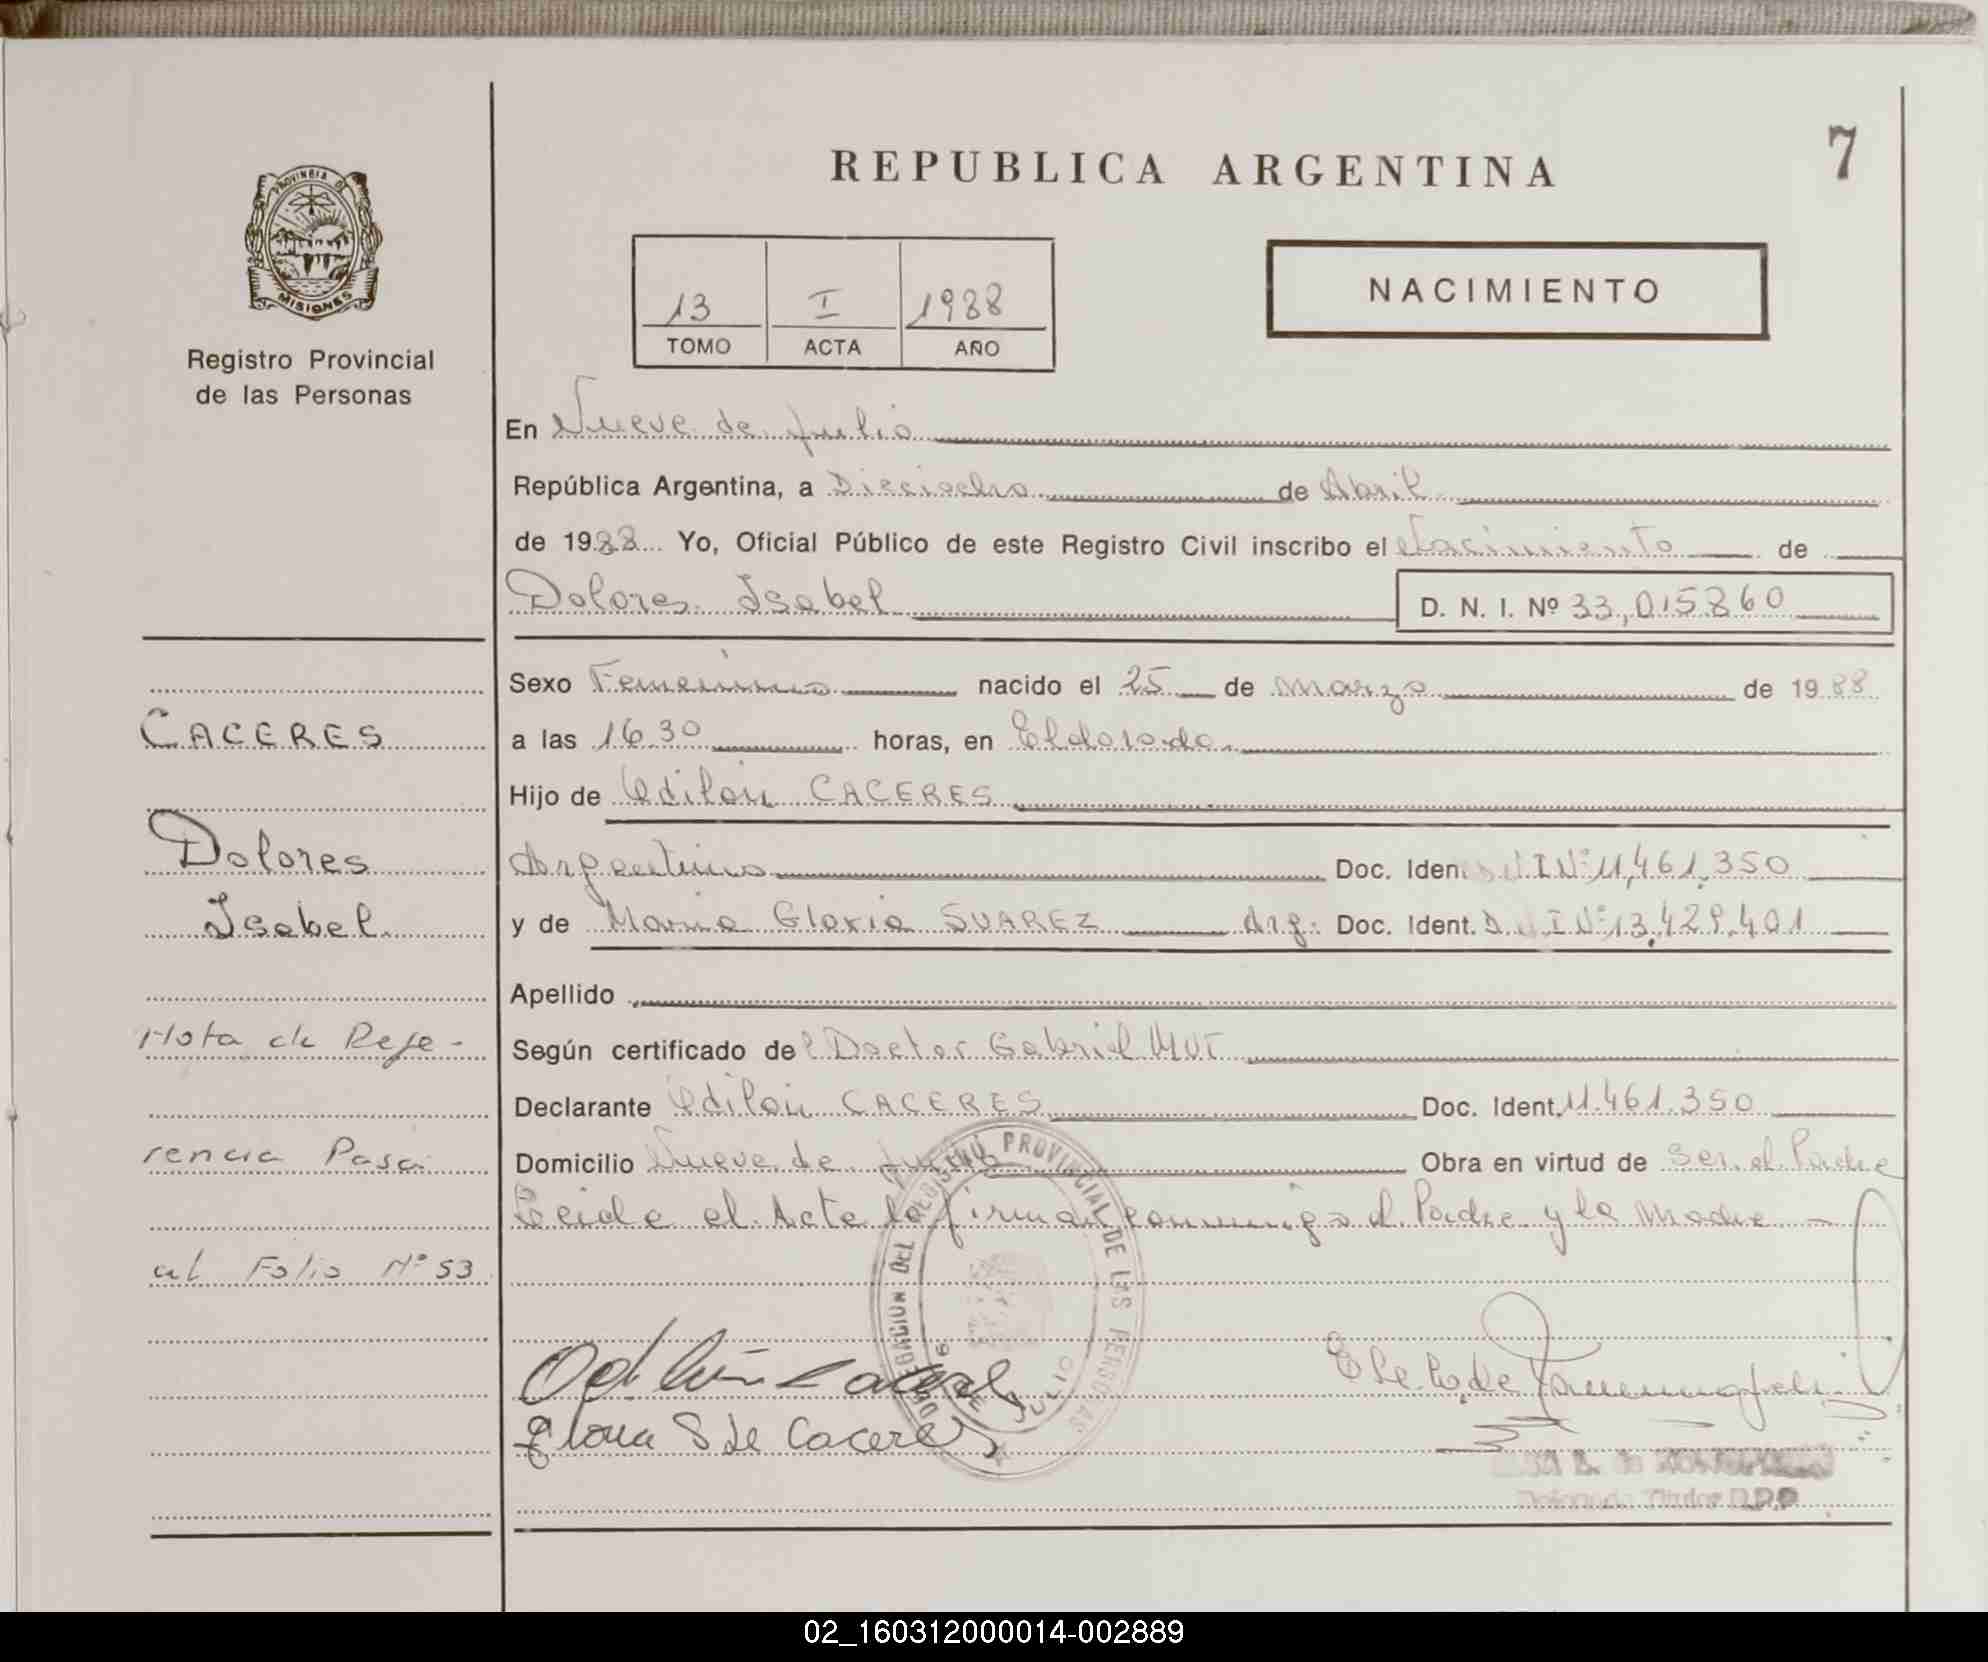 REPUBLICA ARGENTINA
7
PROVINCIA DE
MISIONES
Registro Provincial
de las Personas
13 I 1988
TOMO ACTA AÑO
NACIMIENTO
En Nueve de Julio
República Argentina, a Dieciocho de Abril
de 1988 Yo, Oficial Público de este Registro Civil inscribo el Nacimiento de
Dolores Isabel D. N. I. Nº 33,015860
Sexo Femenino nacido el 25 de Marzo de 1988
CACERES
a las 16.30 horas, en Eldorado
Hijo de Odilón CACERES
Dolores
Argentino Doc. Iden. D N I Nº 11,461,350
Isabel
y de Maria Gloria SUAREZ Arg: Doc. Ident. D N I Nº 13,429,401
Apellido
Nota de Refe-
Según certificado del Doctor Gabriel MUT
Declarante Odilón CACERES Doc. Ident. 11.461.350
rencia Pasa
Domicilio Nueve de Julio Obra en virtud de Ser el Padre
Leida el Acta la firman conmigo el Padre y la Madre
al Folio Nº 53
DELEGACION DEL REGISTRO PROVINCIAL DE LAS PERSONAS
9 DE JULIO
Odilón Caceres
Gloria S de Caceres
Delegada Titular R.P.P
02_160312000014-002889